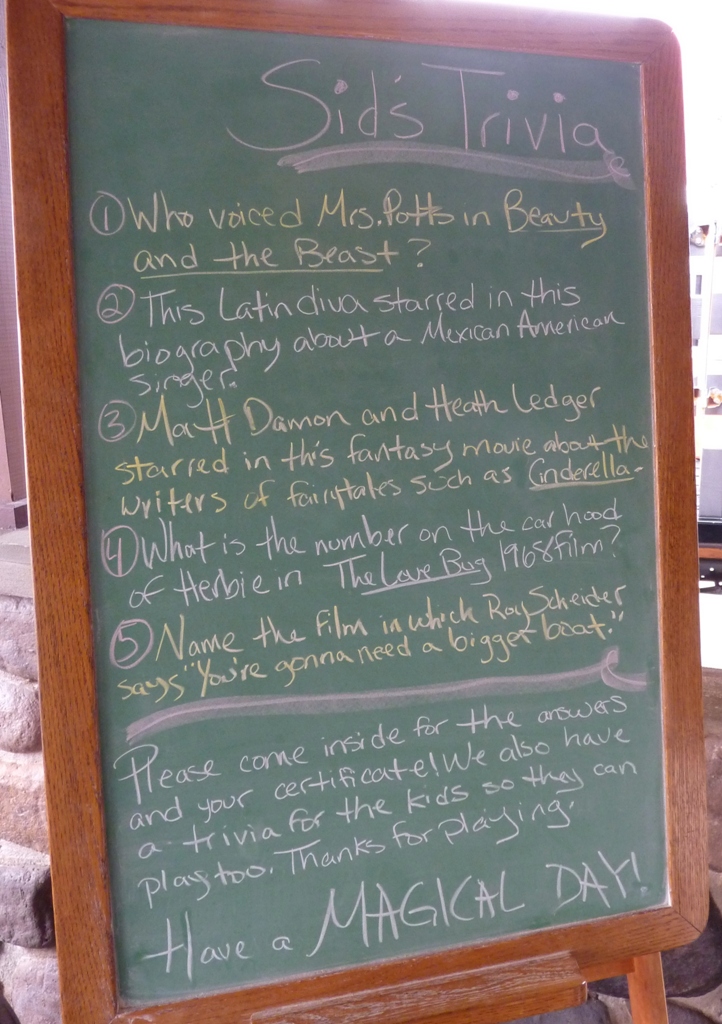 Sid's Trivia
① Who voiced Mrs. Potts in Beauty
and the Beast?
② This Latin diva starred in this
biography about a Mexican American
singer.
③ Matt Damon and Heath Ledger
starred in this fantasy movie about the
writers of fairytales such as Cinderella.
④ What is the number on the car hood
of Herbie in The Love Bug 1968 film?
⑤ Name the film in which Roy Scheider
says "You're gonna need a bigger boat."
Please come inside for the answers
and your certificate! We also have
a trivia for the kids so they can
play too. Thanks for playing.
Have a MAGICAL DAY!